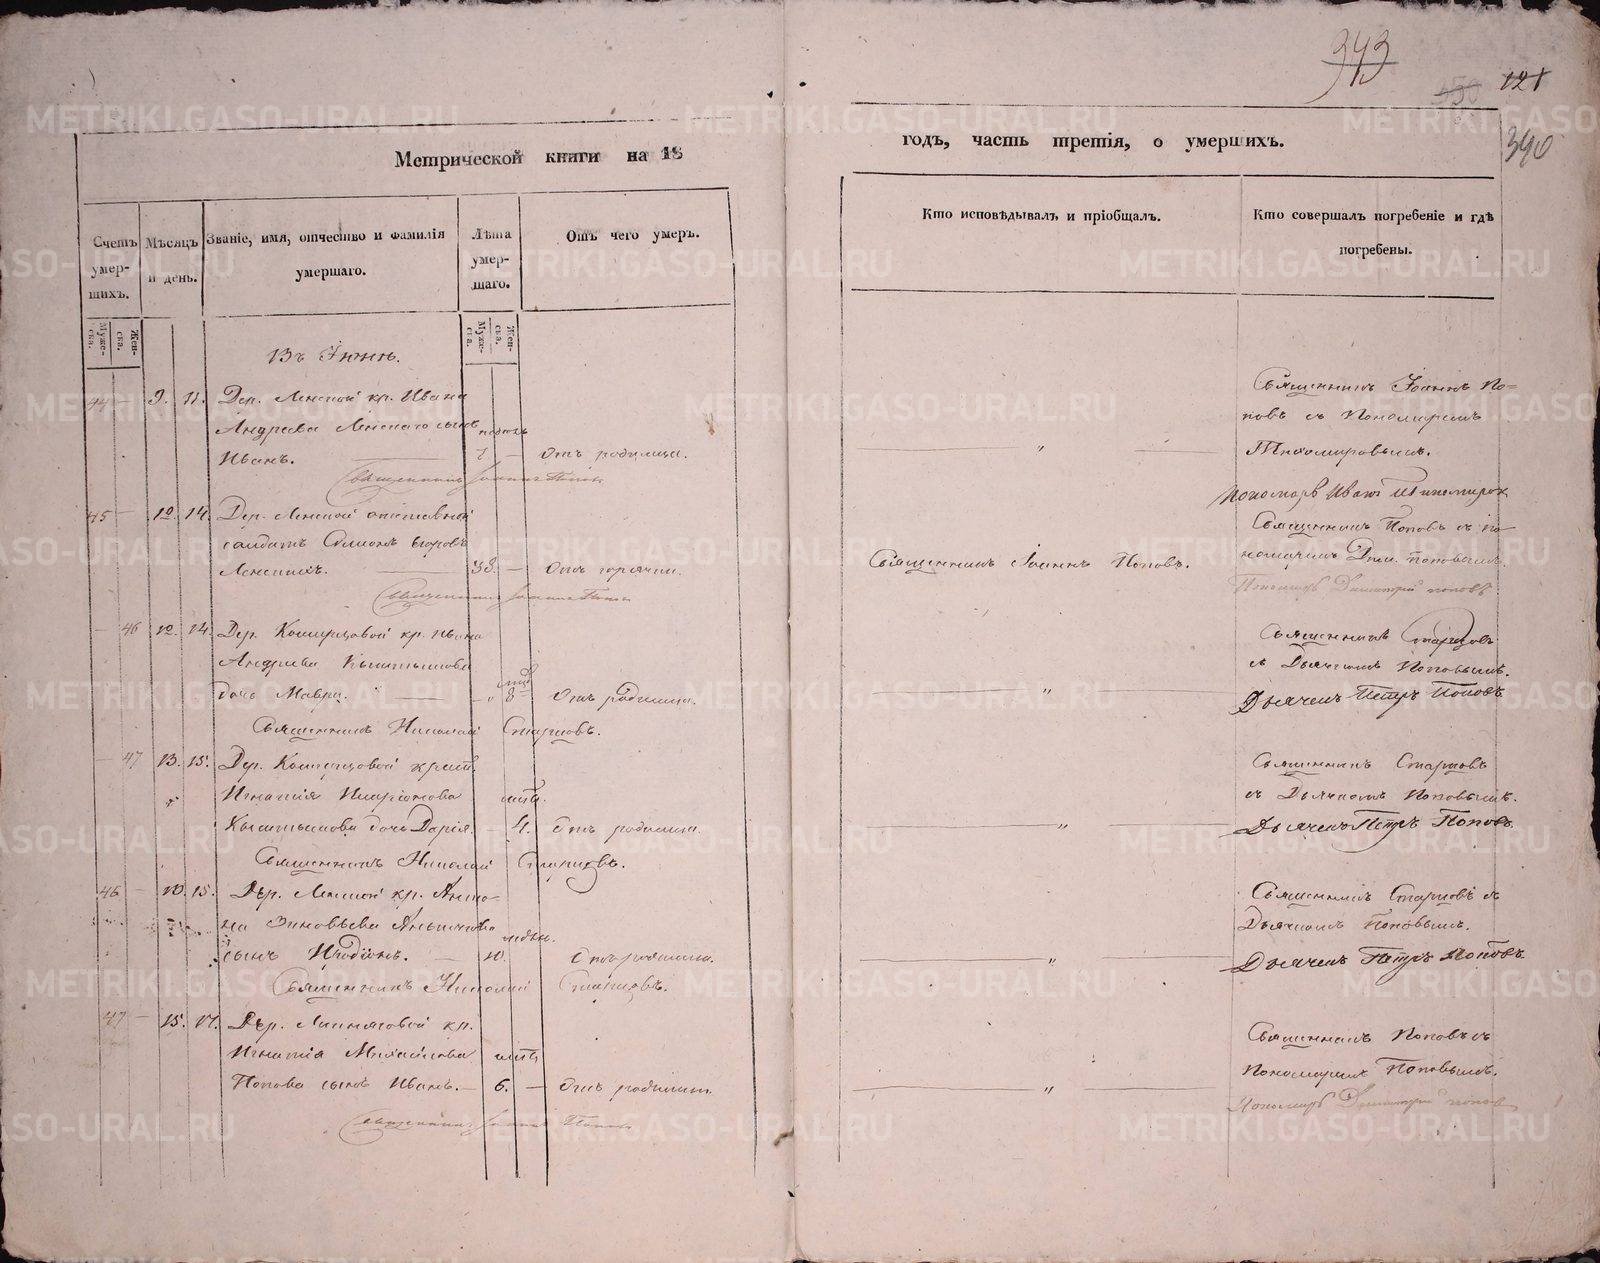 343
450 121
390
Метрической книги на 18
годъ, часть третія, о умершихъ.
Счетъ умер-шихъ.
Мѣсяцъ и день.
Званіе, имя, отчество и фамилія умершаго.
Лѣта умер-шаго.
Отъ чего умеръ.
Кто исповѣдывалъ и пріобщалъ.
Кто совершалъ погребеніе и гдѣ погребены.
Муже-ска.
Жен-ска.
Муже-ска.
Жен-ска.
Въ Іюнѣ.
44 — 9. 11. Дер. Ленской кр. Ивана
Андреева Ленскаго сынъ
Иванъ. 7 — Отъ родимца.
Священникъ Іоаннъ Поповъ
Священникъ Іоаннъ По=
повъ съ Пономаремъ
Тихомировымъ.
Пономарь Иванъ Тихомировъ
45 — 12 14. Дер. Ленской отставной
солдатъ Симеонъ
Ленскихъ. 33. — Отъ горячки.
Священникъ Іоаннъ Поповъ
Священникъ Іоаннъ Поповъ.
Священникъ Поповъ съ по-
номаремъ Дим. Поповымъ.
Пономарь Димитрій Поповъ
— 46 12. 14. Дер. Кошурцовой кр. Ивана
Андреева Кыштымова
дочь Мавра. 8 Отъ родимца.
Священникъ Николай Старцовъ.
Священникъ Старцовъ
съ Дьячкомъ Поповымъ.
Дьячекъ Петръ Поповъ
— 47 13. 15. Дер. Кошурцовой крест.
Игнатія Иларіонова
Кыштымова дочь Дарія. — 4. Отъ родимца.
Священникъ Николай Старцовъ.
Священникъ Старцовъ
съ Дьячкомъ Поповымъ.
Дьячекъ Петръ Поповъ.
46 — 13. 15. Дер. Ленской кр.
на Зиновьева
сынъ Иродіонъ. — 10. Отъ родимца.
Священникъ Николай Старцовъ.
Священникъ Старцовъ съ
Дьячкомъ Поповымъ.
Дьячекъ Петръ Поповъ
47 — 15. 17. Дер. кр.
Игнатія Михайлова
Попова сынъ Иванъ. — 6. — Отъ родимца.
Священникъ Іоаннъ Поповъ
Священникъ Поповъ съ
Пономаремъ Поповымъ.
Пономарь Димитрій Поповъ
METRIKI.GASO-URAL.RU